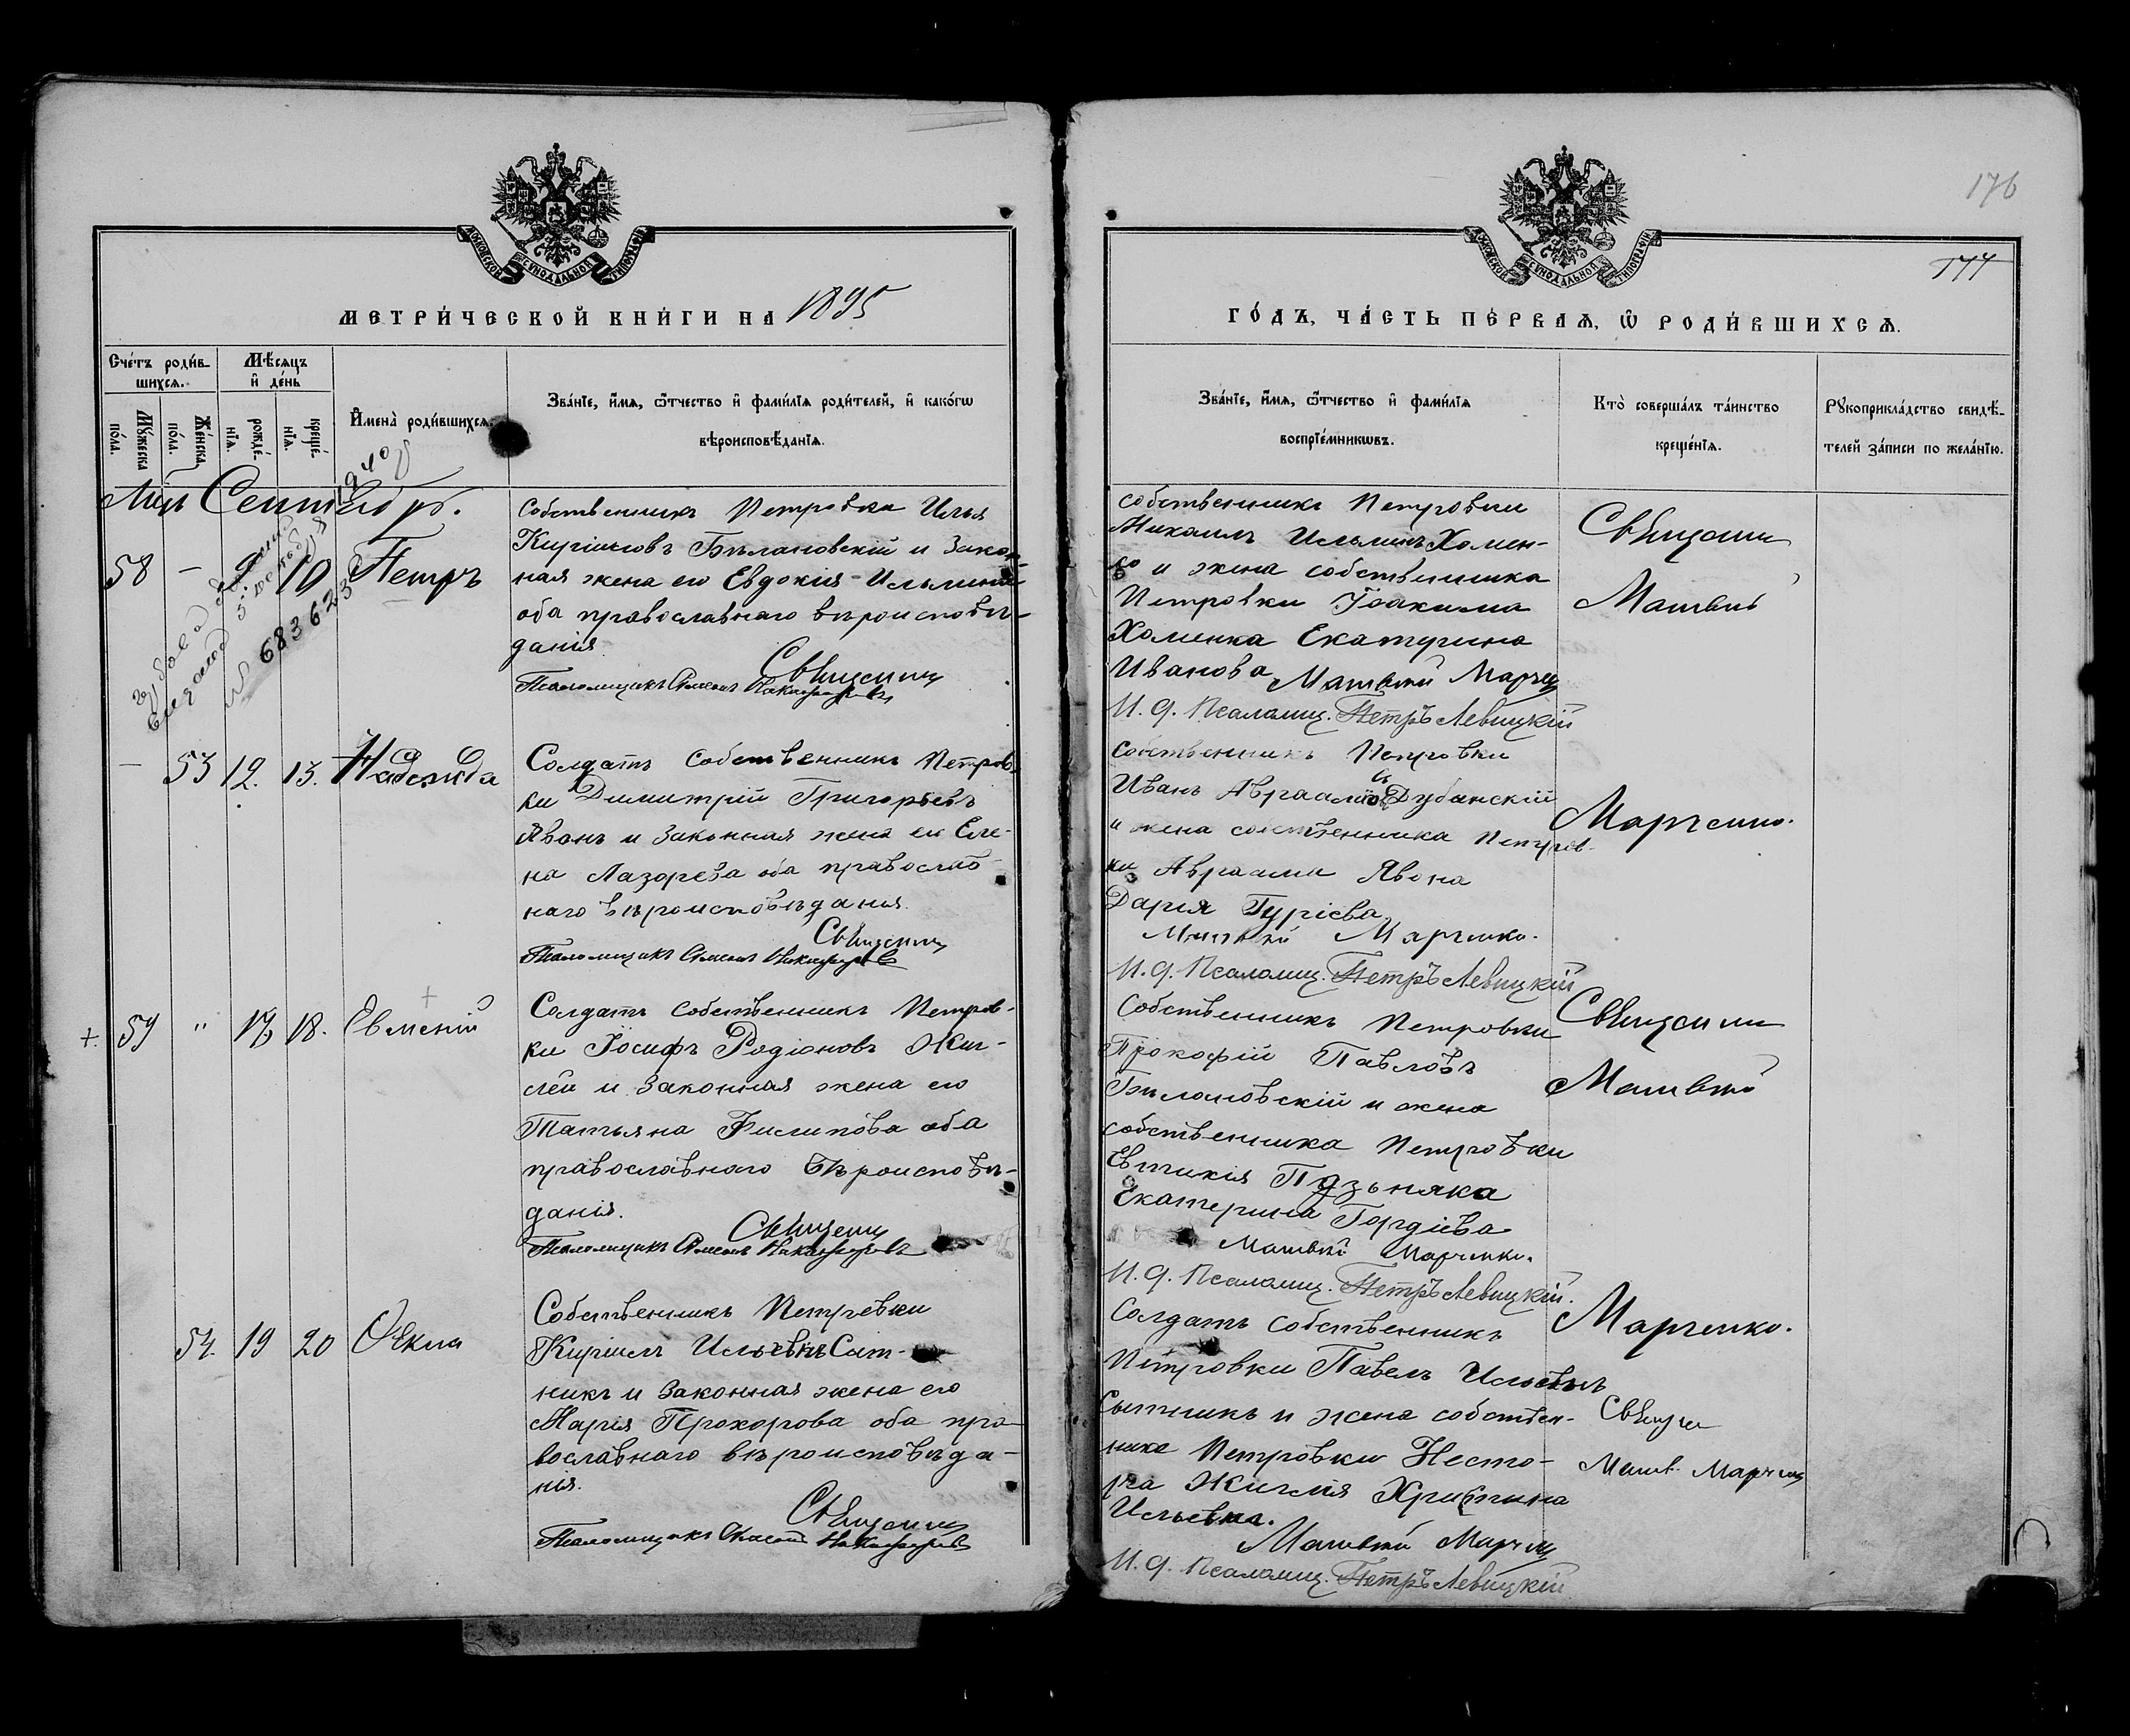 176
174
МОСКОВСКОЙ СѴНОДАЛЬНОЙ ТИПОГРАФІИ
МОСКОВСКОЙ СѴНОДАЛЬНОЙ ТИПОГРАФІИ
МЕТРИ́ЧЕСКОЙ КНИ́ГИ НА 1895
ГО́ДЪ, ЧА́СТЬ ПЕ́РВАѦ, Ѡ РОДИ́ВШИХСѦ.
Сче́тъ роди́в-
шихсѧ.
Мѣ́сѧцъ
и҆ де́нь
Мꙋ́жеска
по́ла.
Же́нска
по́ла.
рожде́-
нїѧ.
креще́-
нїѧ.
И҆мена̀ роди́вшихсѧ.
Зва́нїе, и҆́мѧ, ѻ҆́тчество и҆ фами́лїѧ роди́телей, и҆ како́гѡ
вѣроисповѣ́данїѧ.
Зва́нїе, и҆́мѧ, ѻ҆́тчество и҆ фами́лїѧ
воспрїе́мникѡвъ.
Кто̀ соверша́лъ та́инство
креще́нїѧ.
Рꙋкоприкла́дство свидѣ́-
телей за́писи по жела́нїю.
Мцъ Сентябрь.
1940
№ 6836623
58 — 9 10 Петръ
собственникъ Петровки Илья
Кириловъ Бѣлановскій и закон-
ная жена его Евдокия Ильина
оба православнаго вѣроисповѣ-
данія.
Свищенн
Псаломщикъ Симеонъ Никифоровъ
собственникъ Петровки
Михаилъ Ильинъ Хомен-
ко и жена собственника
Петровки Іоакима
Хоменка Екатерина
Иванова
Матвѣй Марч
И. д. Псаломщ. Петръ Левицкій
Священи
Матвѣй
— 53 12. 13. Надежда
Солдатъ собственникъ Петров-
ки Димитрій Григорьевъ
Явонъ и законная жена его Еле-
на Лазорева оба православ-
наго вѣроисповѣданія.
Свищенн
Псаломщикъ Симеонъ Никифоровъ
собственникъ Петровки
Иванъ Авраамовъ Дубанскій
и жена собственника Петров-
ки Авраама Явона
Дарія Гуріева
Матвѣй Марченко.
И. д. Псаломщ. Петръ Левицкій
Марченко.
+ 59 " 17 18. Евмений
Солдатъ собственникъ Петров-
ки Іосифъ Родіоновъ Жиг-
лей и законная жена его
Татьяна Филипова оба
православнаго вѣроисповѣ-
данія.
Свищенн
Псаломщикъ Симеонъ Никифоровъ
Собственникъ Петровки
Прокофій Павловъ
Бѣлановскій и жена
собственника Петровки
Евтихія Пазьняка
Екатерина Гордіева
Матвѣй Марченко.
И. д. Псаломщ. Петръ Левицкій.
Священни
Матвѣй
54. 19 20 Ѳекла
Собственникъ Петровки
Кирилъ Ильевъ Сит-
никъ и законная жена его
Марія Прохорова оба пра-
вославнаго вѣроисповѣда-
нія.
Свищенн
Псаломщикъ Никифоровъ
Солдатъ собственникъ
Петровки Павелъ Ильевъ
Сытникъ и жена собствен-
ника Петровки Несто-
ра Жиглія Христина
Ильева.
Матвѣй Марч
И. д. Псаломщ. Петръ Левицкій
Марченко.
Свяще
Матв. Марчен